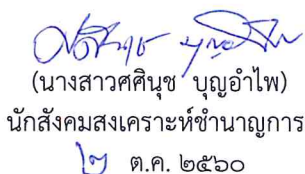 (นางสาวศศินุช บุญอำไพ)
นักสังคมสงเคราะห์ชำนาญการ
๒ ต.ค. ๒๕๖๐